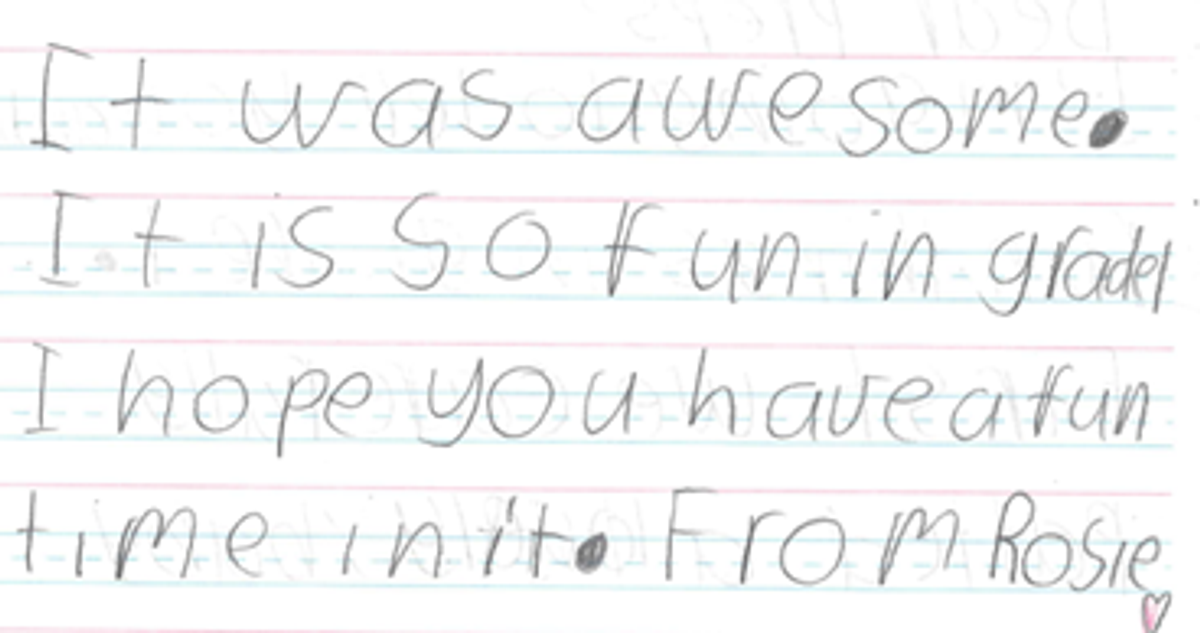 It was awesome.
It is so fun in grade1
I hope you have a fun
time in it. From Rosie